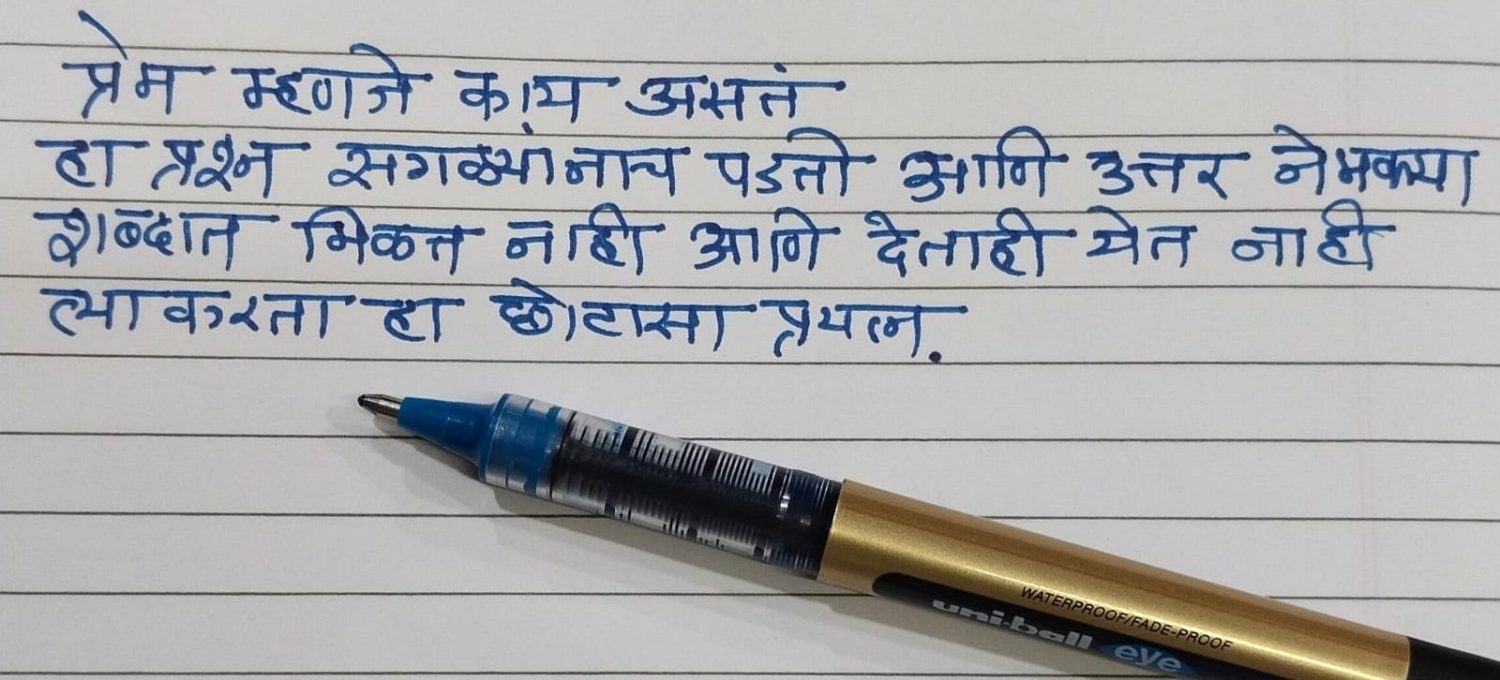 प्रेम म्हणजे काय असतं
हा प्रश्न सगळ्यांनाच पडतो आणि उत्तर नेमक्या
शब्दात मिळत नाही आणि देताही येत नाही
त्याकरता हा छोटासा प्रयत्न.
WATERPROOF/FADE-PROOF
uni-ball eye